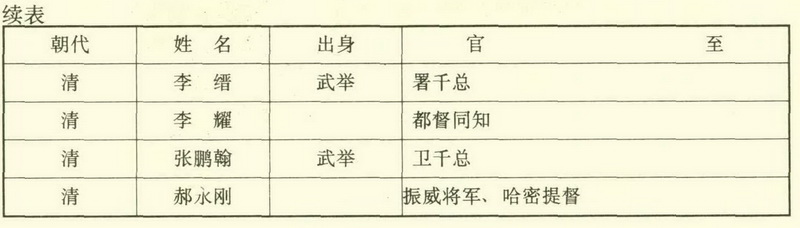 续表
朝代 姓 名 出身 官 至
清 李 缙 武举 署千总
清 李 耀 都督同知
清 张鹏翰 武举 卫千总
清 郝永刚 振威将军、哈密提督